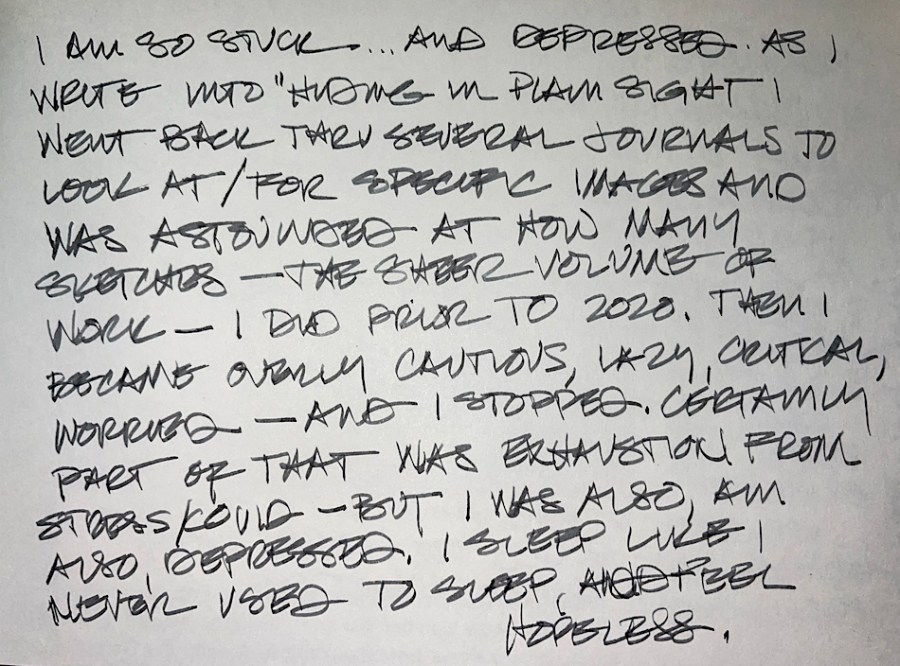 I AM SO STUCK... AND DEPRESSED. AS I
WRITE INTO "HIDING IN PLAIN SIGHT I
WENT BACK THRU SEVERAL JOURNALS TO
LOOK AT/FOR SPECIFIC IMAGES AND
WAS ASTOUNDED AT HOW MANY
SKETCHES – THE SHEER VOLUME OF
WORK – I DID PRIOR TO 2020. THEN I
BECAME OVERLY CAUTIOUS, LAZY, CRITICAL,
WORRIED – AND I STOPPED. CERTAINLY
PART OF THAT WAS EXHAUSTION FROM
STRESS/COVID – BUT I WAS ALSO, AM
ALSO, DEPRESSED. I SLEEP LIKE I
NEVER USED TO SLEEP, AND FEEL
HOPELESS.